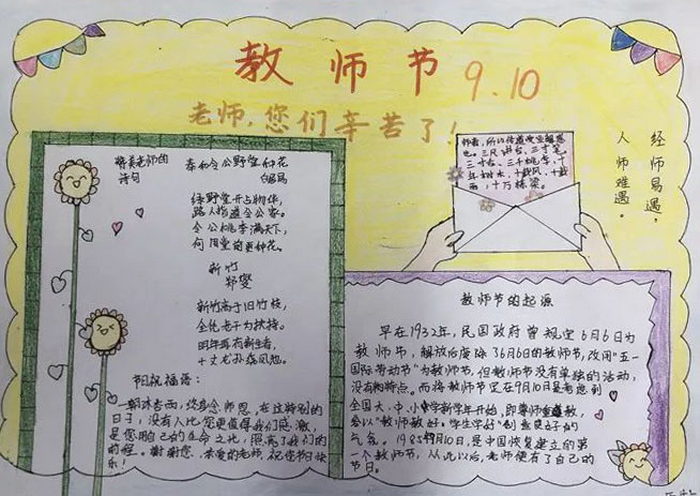 教师节 9.10
老师,您们辛苦了!
师者,所以传道受业解惑
也。三尺讲台,三寸笔,
三寸舌,三千桃李,十
年树木,十载风,十载
雨,十万栋梁。
经师易遇,
人师难遇。
赞美老师的
诗句
奉和令公野堂种花
白居易
绿野堂开占物华,
路人指道令公家。
令公桃李满天下,
何用堂前更种花。
新竹
郑燮
新竹高于旧竹枝,
全凭老干为扶持。
明年再有新生者,
十丈龙孙绕凤池。
节日祝福语:
一朝沐杏雨,终身念师恩,在这特别的
日子,没有人比您更值得我们感激,
是您用自己的生命之光,照亮了我们的
前程。谢谢您,亲爱的老师,祝您节日快
乐!
教师节的起源
早在1932年,民国政府曾规定6月6日为
教师节,解放后废除了6月6日的教师节,改用"五一
国际劳动节"为教师节,但教师节没有单独的活动,
没有构特点。而将教师节定在9月10日是考虑到
全国大、中、小学新学年开始,即尊师重教,
可以"教师教好,学生学好"创造良好的
气氛。1985年9月10日,是中国恢复建立的第
一个教师节,从此以后,老师便有了自己的
节日。